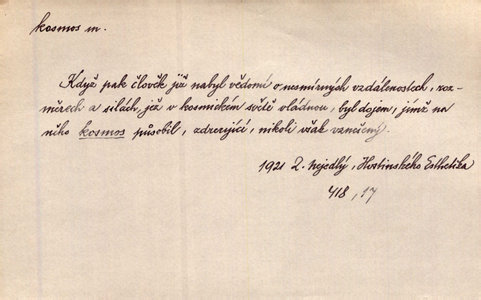 kosmos m.
Když pak člověk již nabyl vědomí o nesmírných vzdálenostech, roz-
měrech a silách, jež v kosmickém světě vládnou, byl dojem, jímž na
něho kosmos působil, zdrcující, nikoli však vznešený.
1921 Z. Nejedlý, Hostinského Esthetika
418, 17